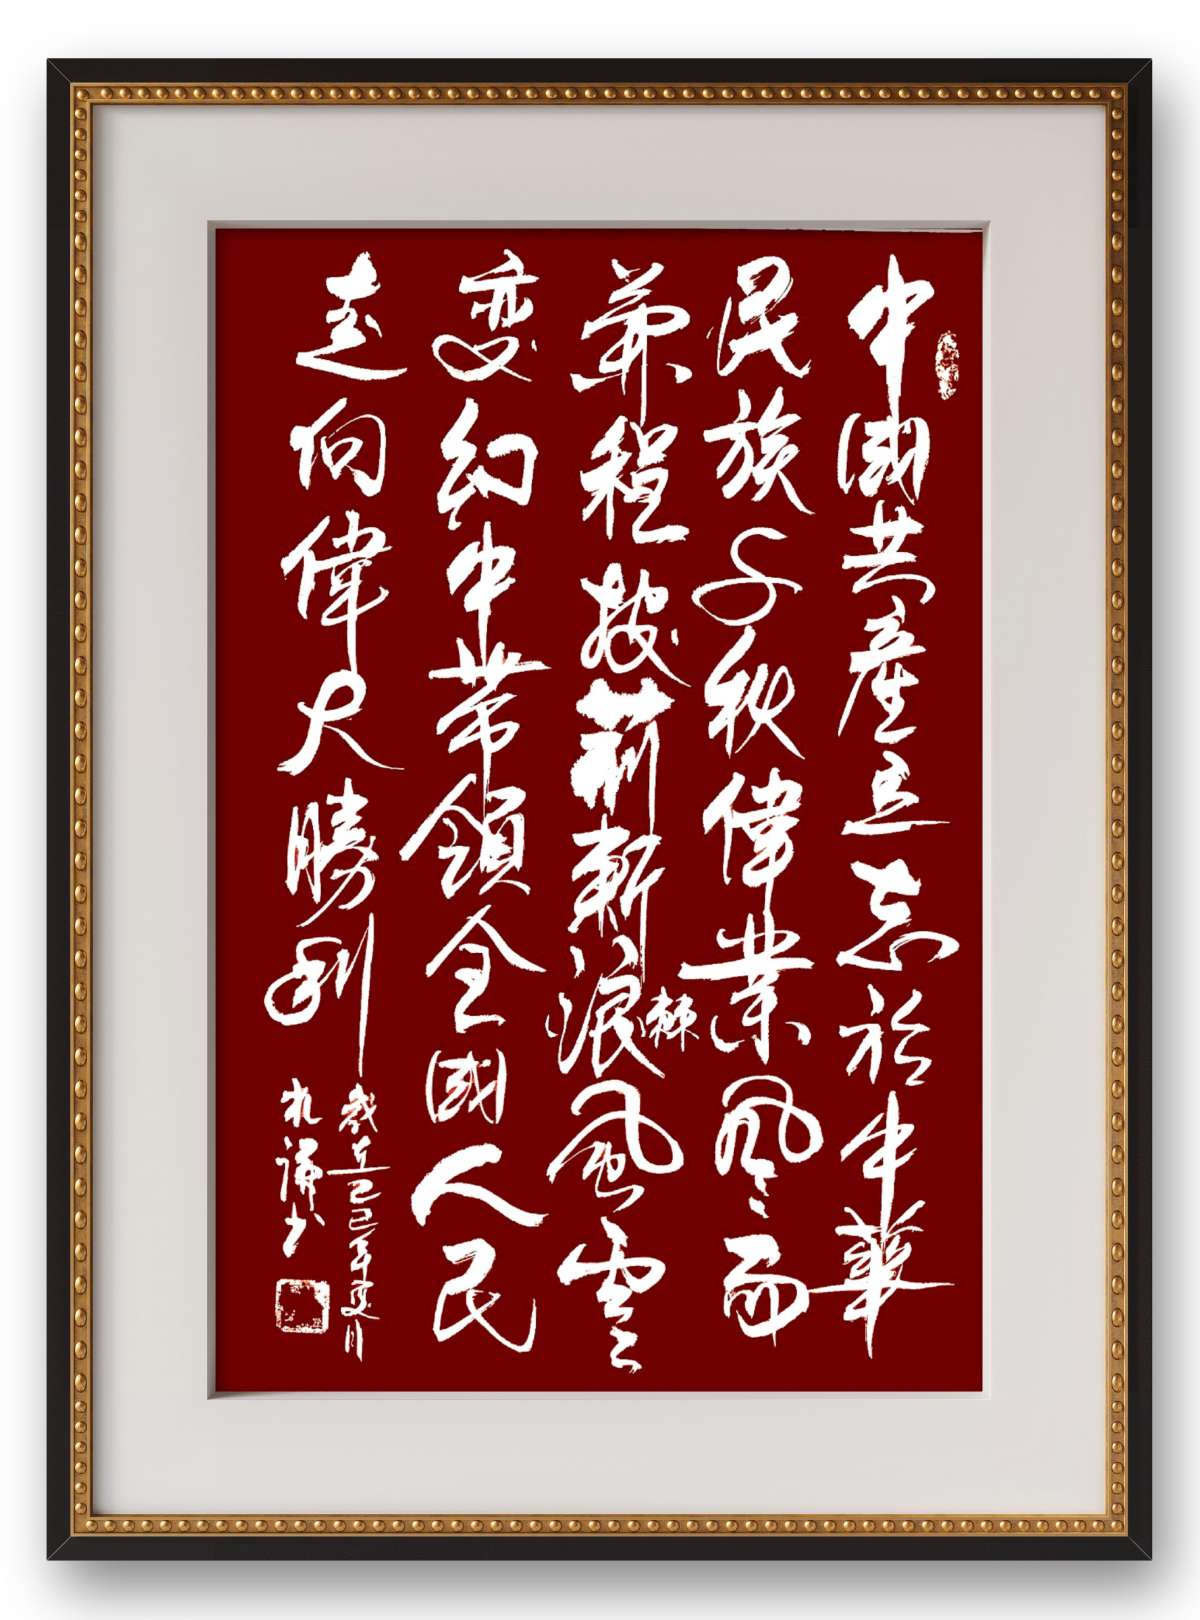 中國共產立志於中華
民族千秋偉業風雨
兼程披荊斬浪棘風雲
變幻中帶領全國人民
走向偉大勝利
歲在乙巳年夏月
書